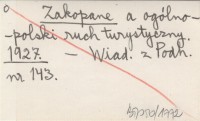 Zakopane a ogólno-
-polski ruch turystyczny.
1927. — Wiad. z Podh.
nr 143.